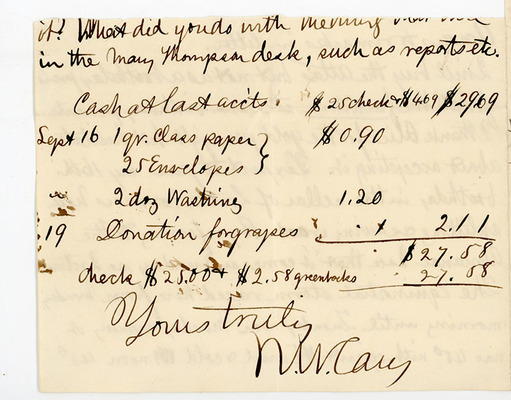 it? What did you do with
in the Mary Thompson desk, such as reports etc.
Cash at last acc'ts. $25 check + $4.69 $29.69
Sept 16 1 gr. Class paper } $0.90
25 Envelopes }
2 doz Washing 1.20
" 19 Donation for grapes . + 2.11
$27.58
Check $25.00 + $2.58 greenbacks 27.58
Yours truly